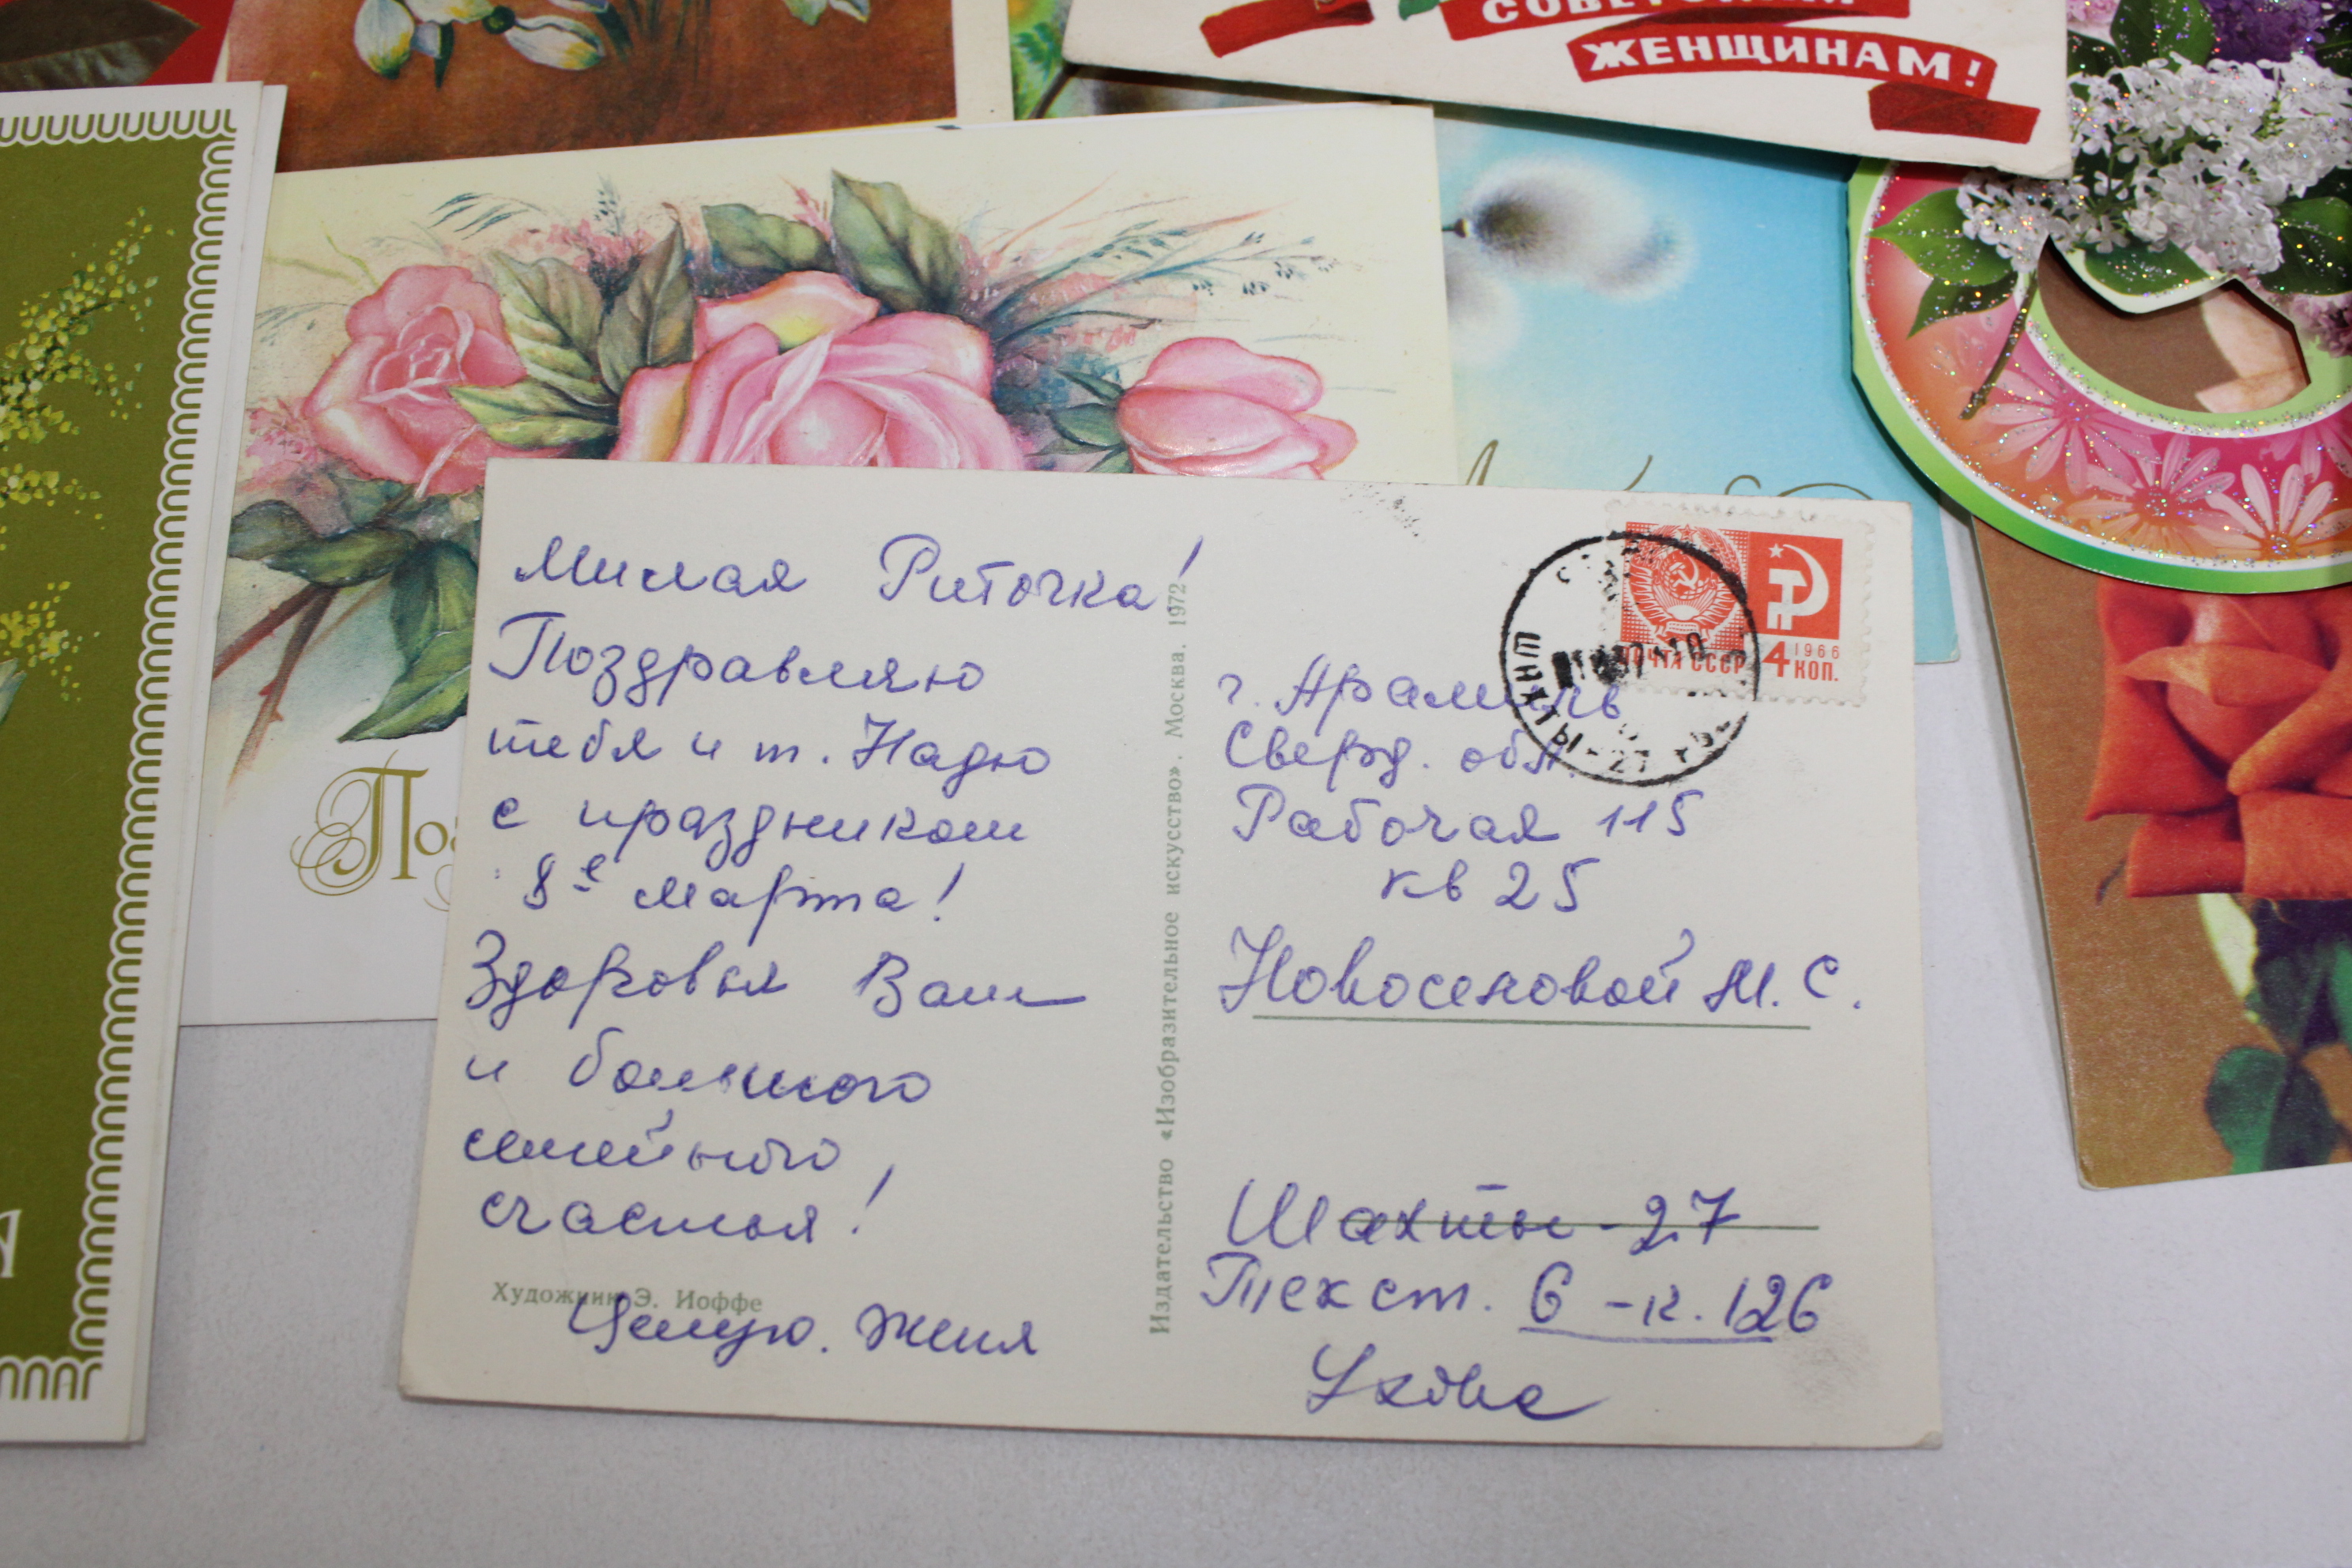 ЖЕНЩИНАМ!
Милая Риточка!
Поздравляю
тебя и т. Надю
с праздником
8е марта!
Здоровья Вам
и большого
семейного
счастья!
Художник Э. Иоффе
Целую. Женя
Издательство «Изобразительное искусство». Москва. 1972
ПОЧТА СССР
1966
4 КОП.
ШАХТЫ-27
г. Арамиль
Сверд. обл.
Рабочая 115
кв 25
Новоселовой М. С.
Шахты-27
Текст. 6 -к. 126
Ухова
По